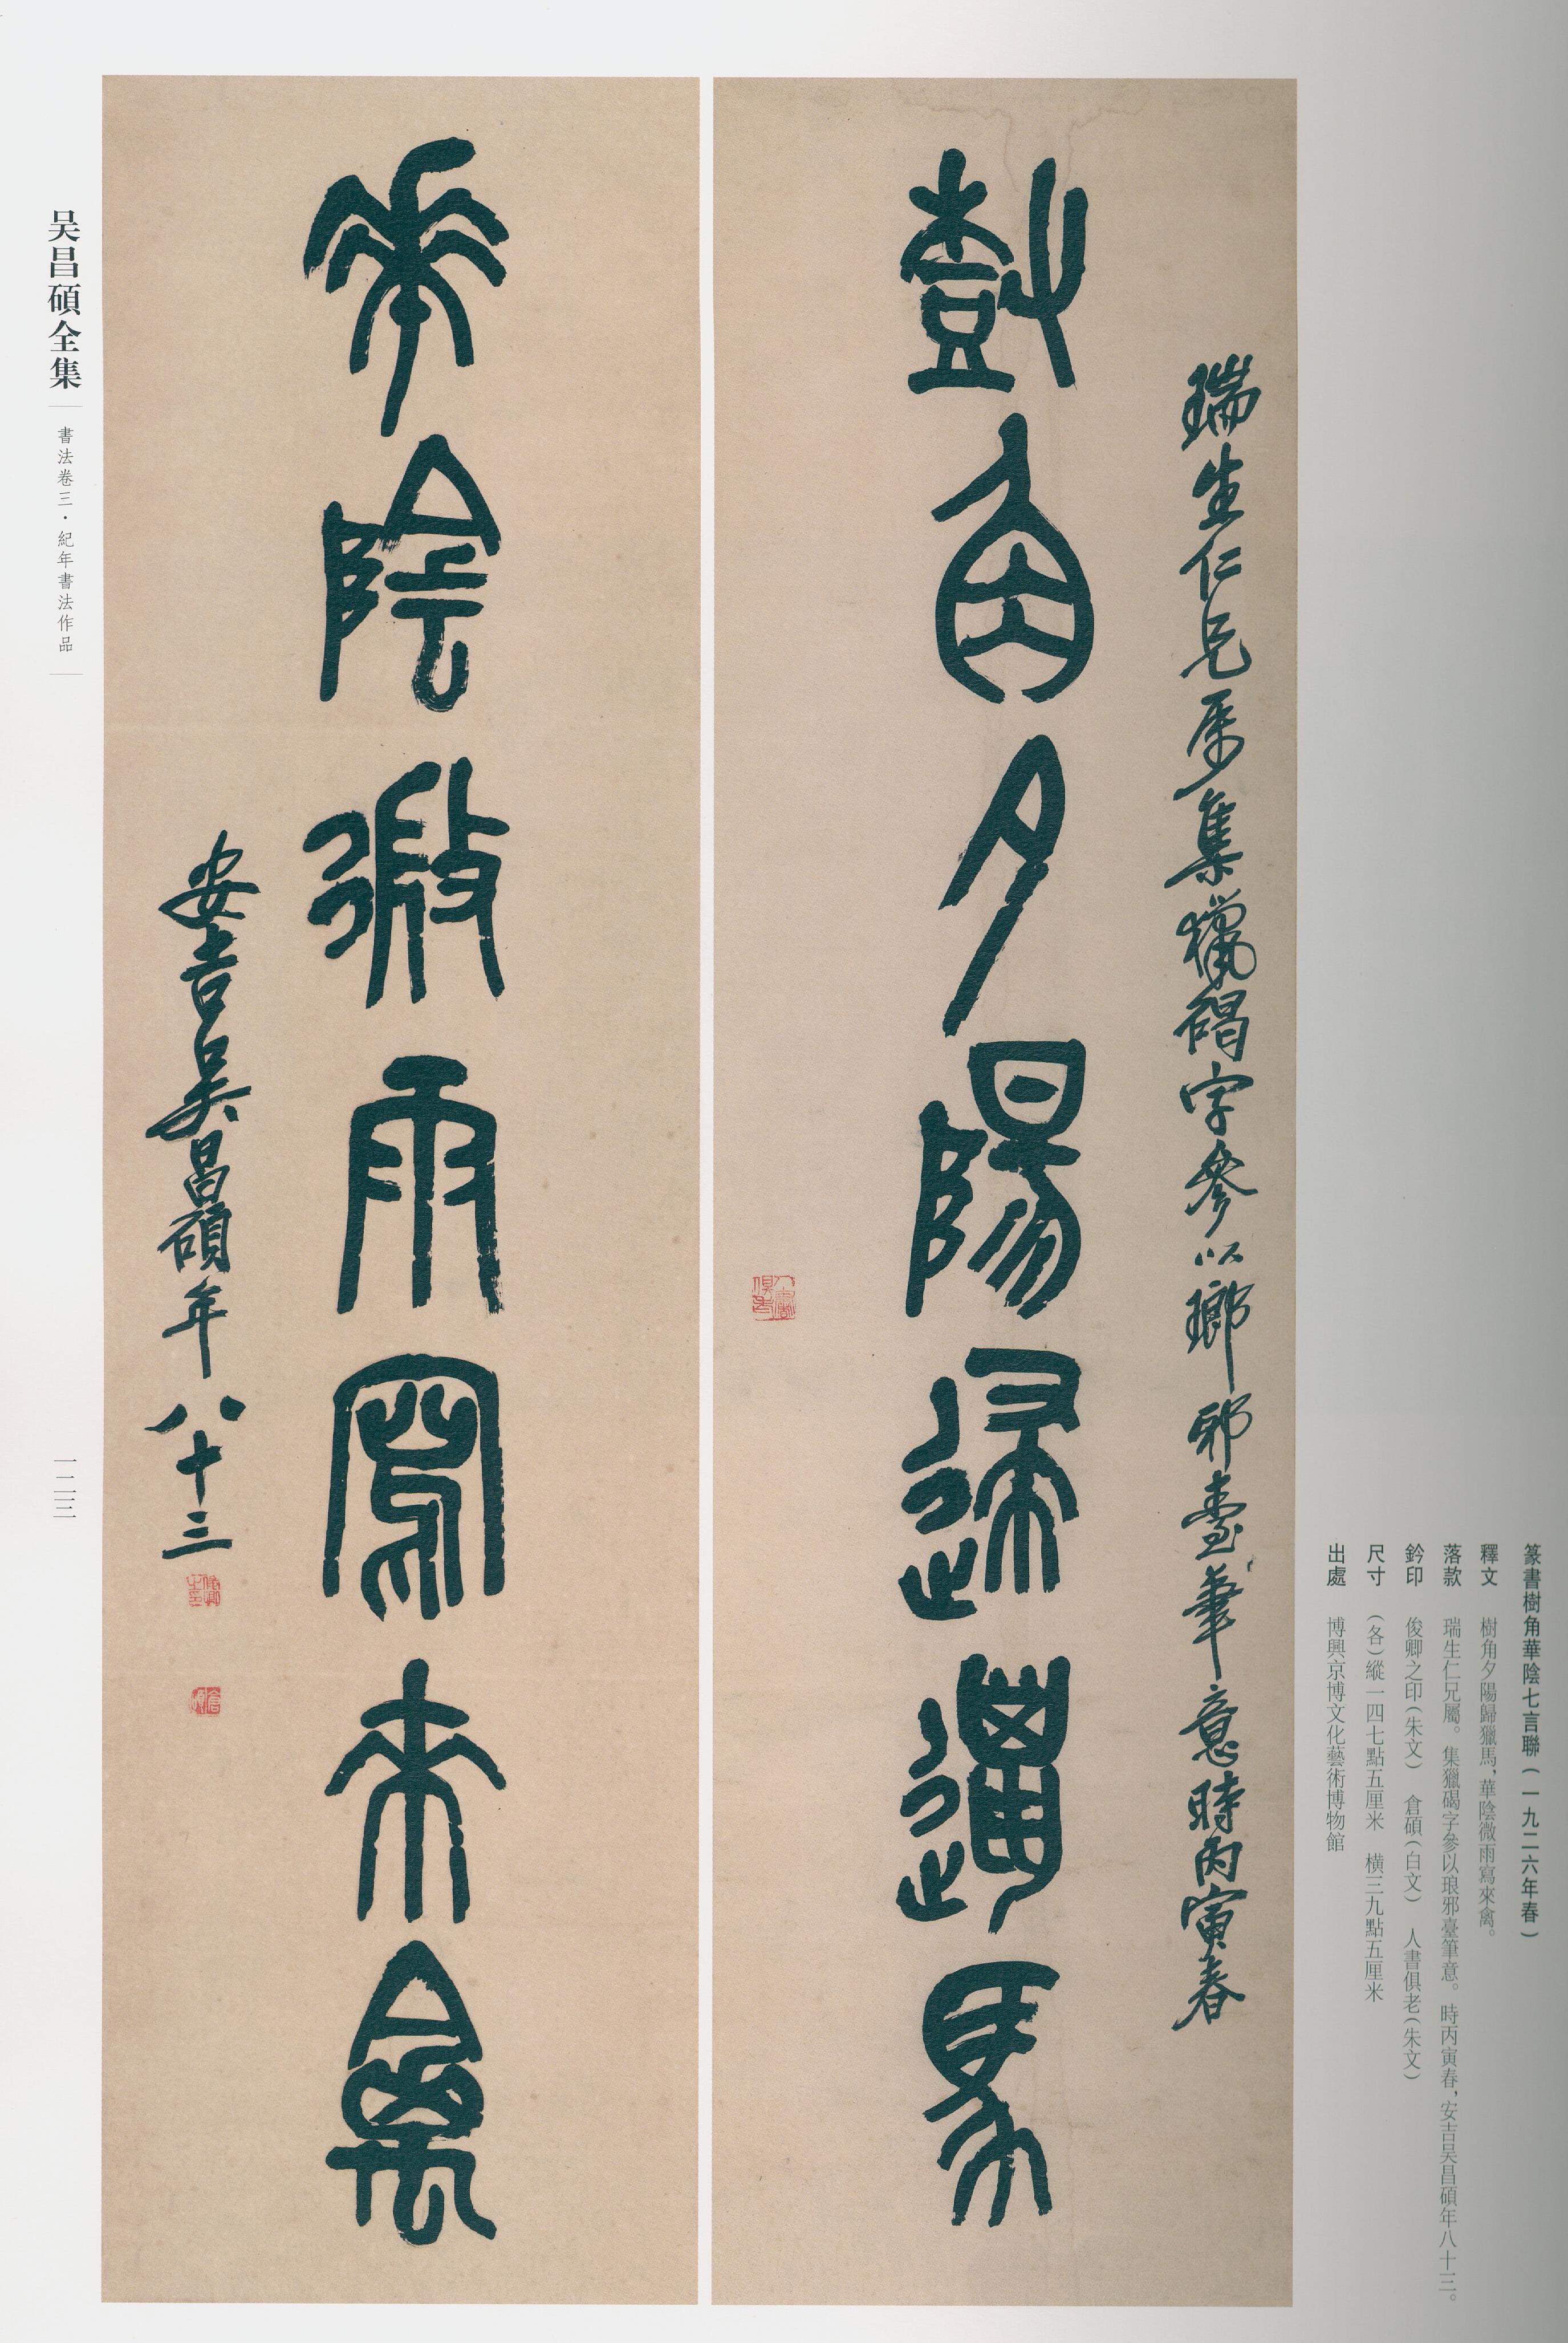 篆書樹角華陰七言聯（一九二六年春）
釋文　樹角夕陽歸獵馬，華陰微雨寫來禽。
落款　瑞生仁兄屬。集獵碣字參以琅邪臺筆意。時丙寅春，安吉吴昌碩年八十三。
鈐印　俊卿之印（朱文）　倉碩（白文）　人書俱老（朱文）
尺寸　（各）縱一四七點五厘米　橫三九點五厘米
出處　博興京博文化藝術博物館
瑞生仁兄属集獵碣字參以瑯邪臺筆意時丙寅春
樹角夕陽歸獵馬
人書俱老
華陰微雨寫來禽
安吉吴昌碩年八十三
俊卿之印
倉碩
吴昌碩全集
書法卷三·紀年書法作品
一二三